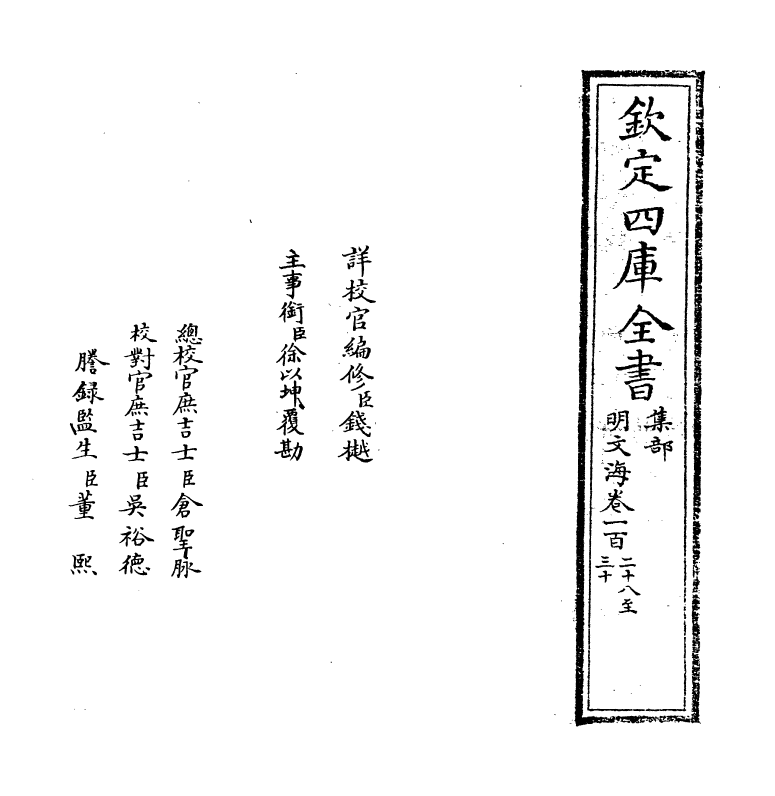 欽定四庫全書
集部
明文海卷一百
二十八至
三十
詳校官編修臣錢樾
主事銜臣徐以坤覆勘
總校官庶吉士臣倉聖脈
校對官庶吉士臣吳裕德
謄録監生臣董熙